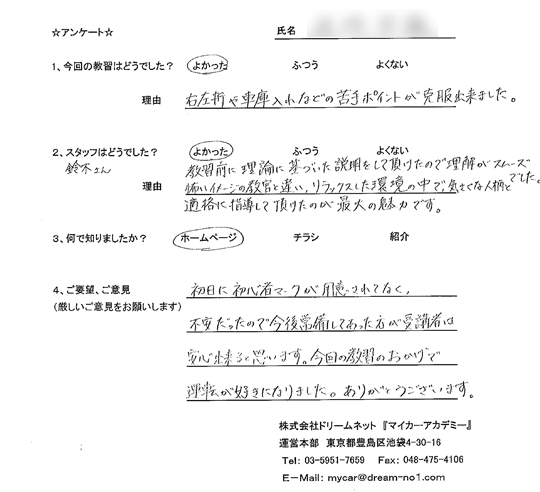 ☆アンケート☆ 氏名
1、今回の教習はどうでした? よかった ふつう よくない
理由 右左折や車庫入れなどの苦手ポイントが克服出来ました。
2、スタッフはどうでした? よかった ふつう よくない
鈴木さん 教習前に理論に基づいた説明をして頂けたので理解がスムーズでした。
理由 怖いイメージの教官と違い、リラックスした環境の中で気さくな人柄と
適格に指導して頂けたのが最大の魅力です。
3、何で知りましたか? ホームページ チラシ 紹介
4、ご要望、ご意見 初日に初心者マークが用意されてなく、
(厳しいご意見をお願いします)
不安だったので今後常備してあった方が受講者は
安心出来ると思います。今回の教習のおかげで
運転が好きになりました。ありがとうございます。
株式会社ドリームネット 『マイカー・アカデミー』
運営本部 東京都豊島区池袋4-30-16
Tel: 03-5951-7659 Fax: 048-475-4106
E-Mail: mycar@dream-no1.com